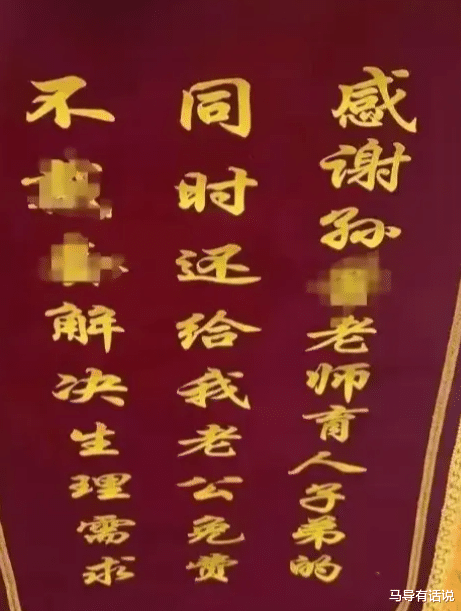 感谢孙老师育人子弟的
同时还给我老公免费
不解决生理需求
马导有话说